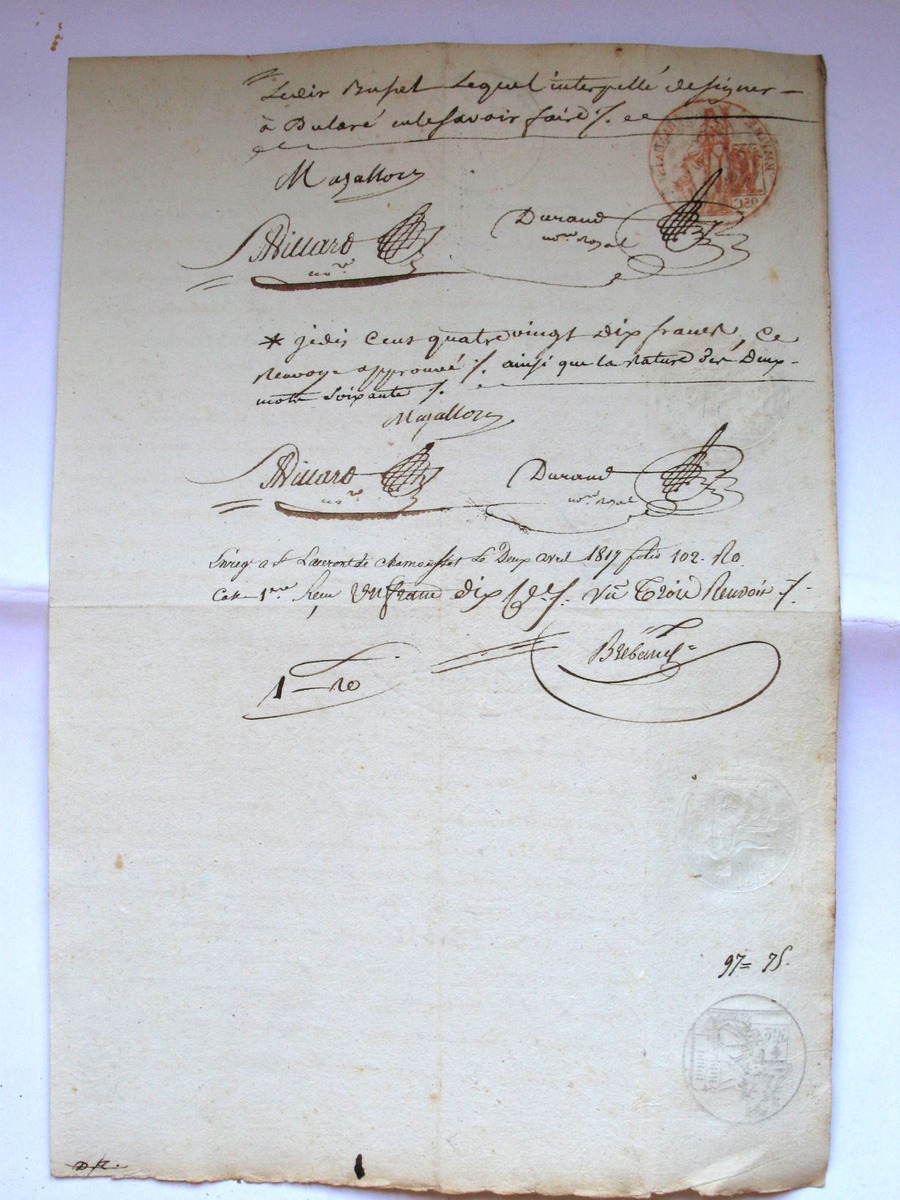 Ledit Buffet Lequel interpellé designer
a Déclaré nelesavoir faire %.
Mazallon
Villard
no.re
Durand
no.re Royal
* jedis Cent quatre vingt Dix francs, Ce
Renvoye approuvé %. ainsi que la Rature des Deux
mots Soixante %.
Mazallon
Villard
no.re
Durand
no.re Royal
Enreg a St Laurent de Chamousset Le Deux avril 1817 folio 102. Ro
Case 1ere Reçu un franc dix %. Vu Trois Renvois %.
Brebant
1—10
97= 75.